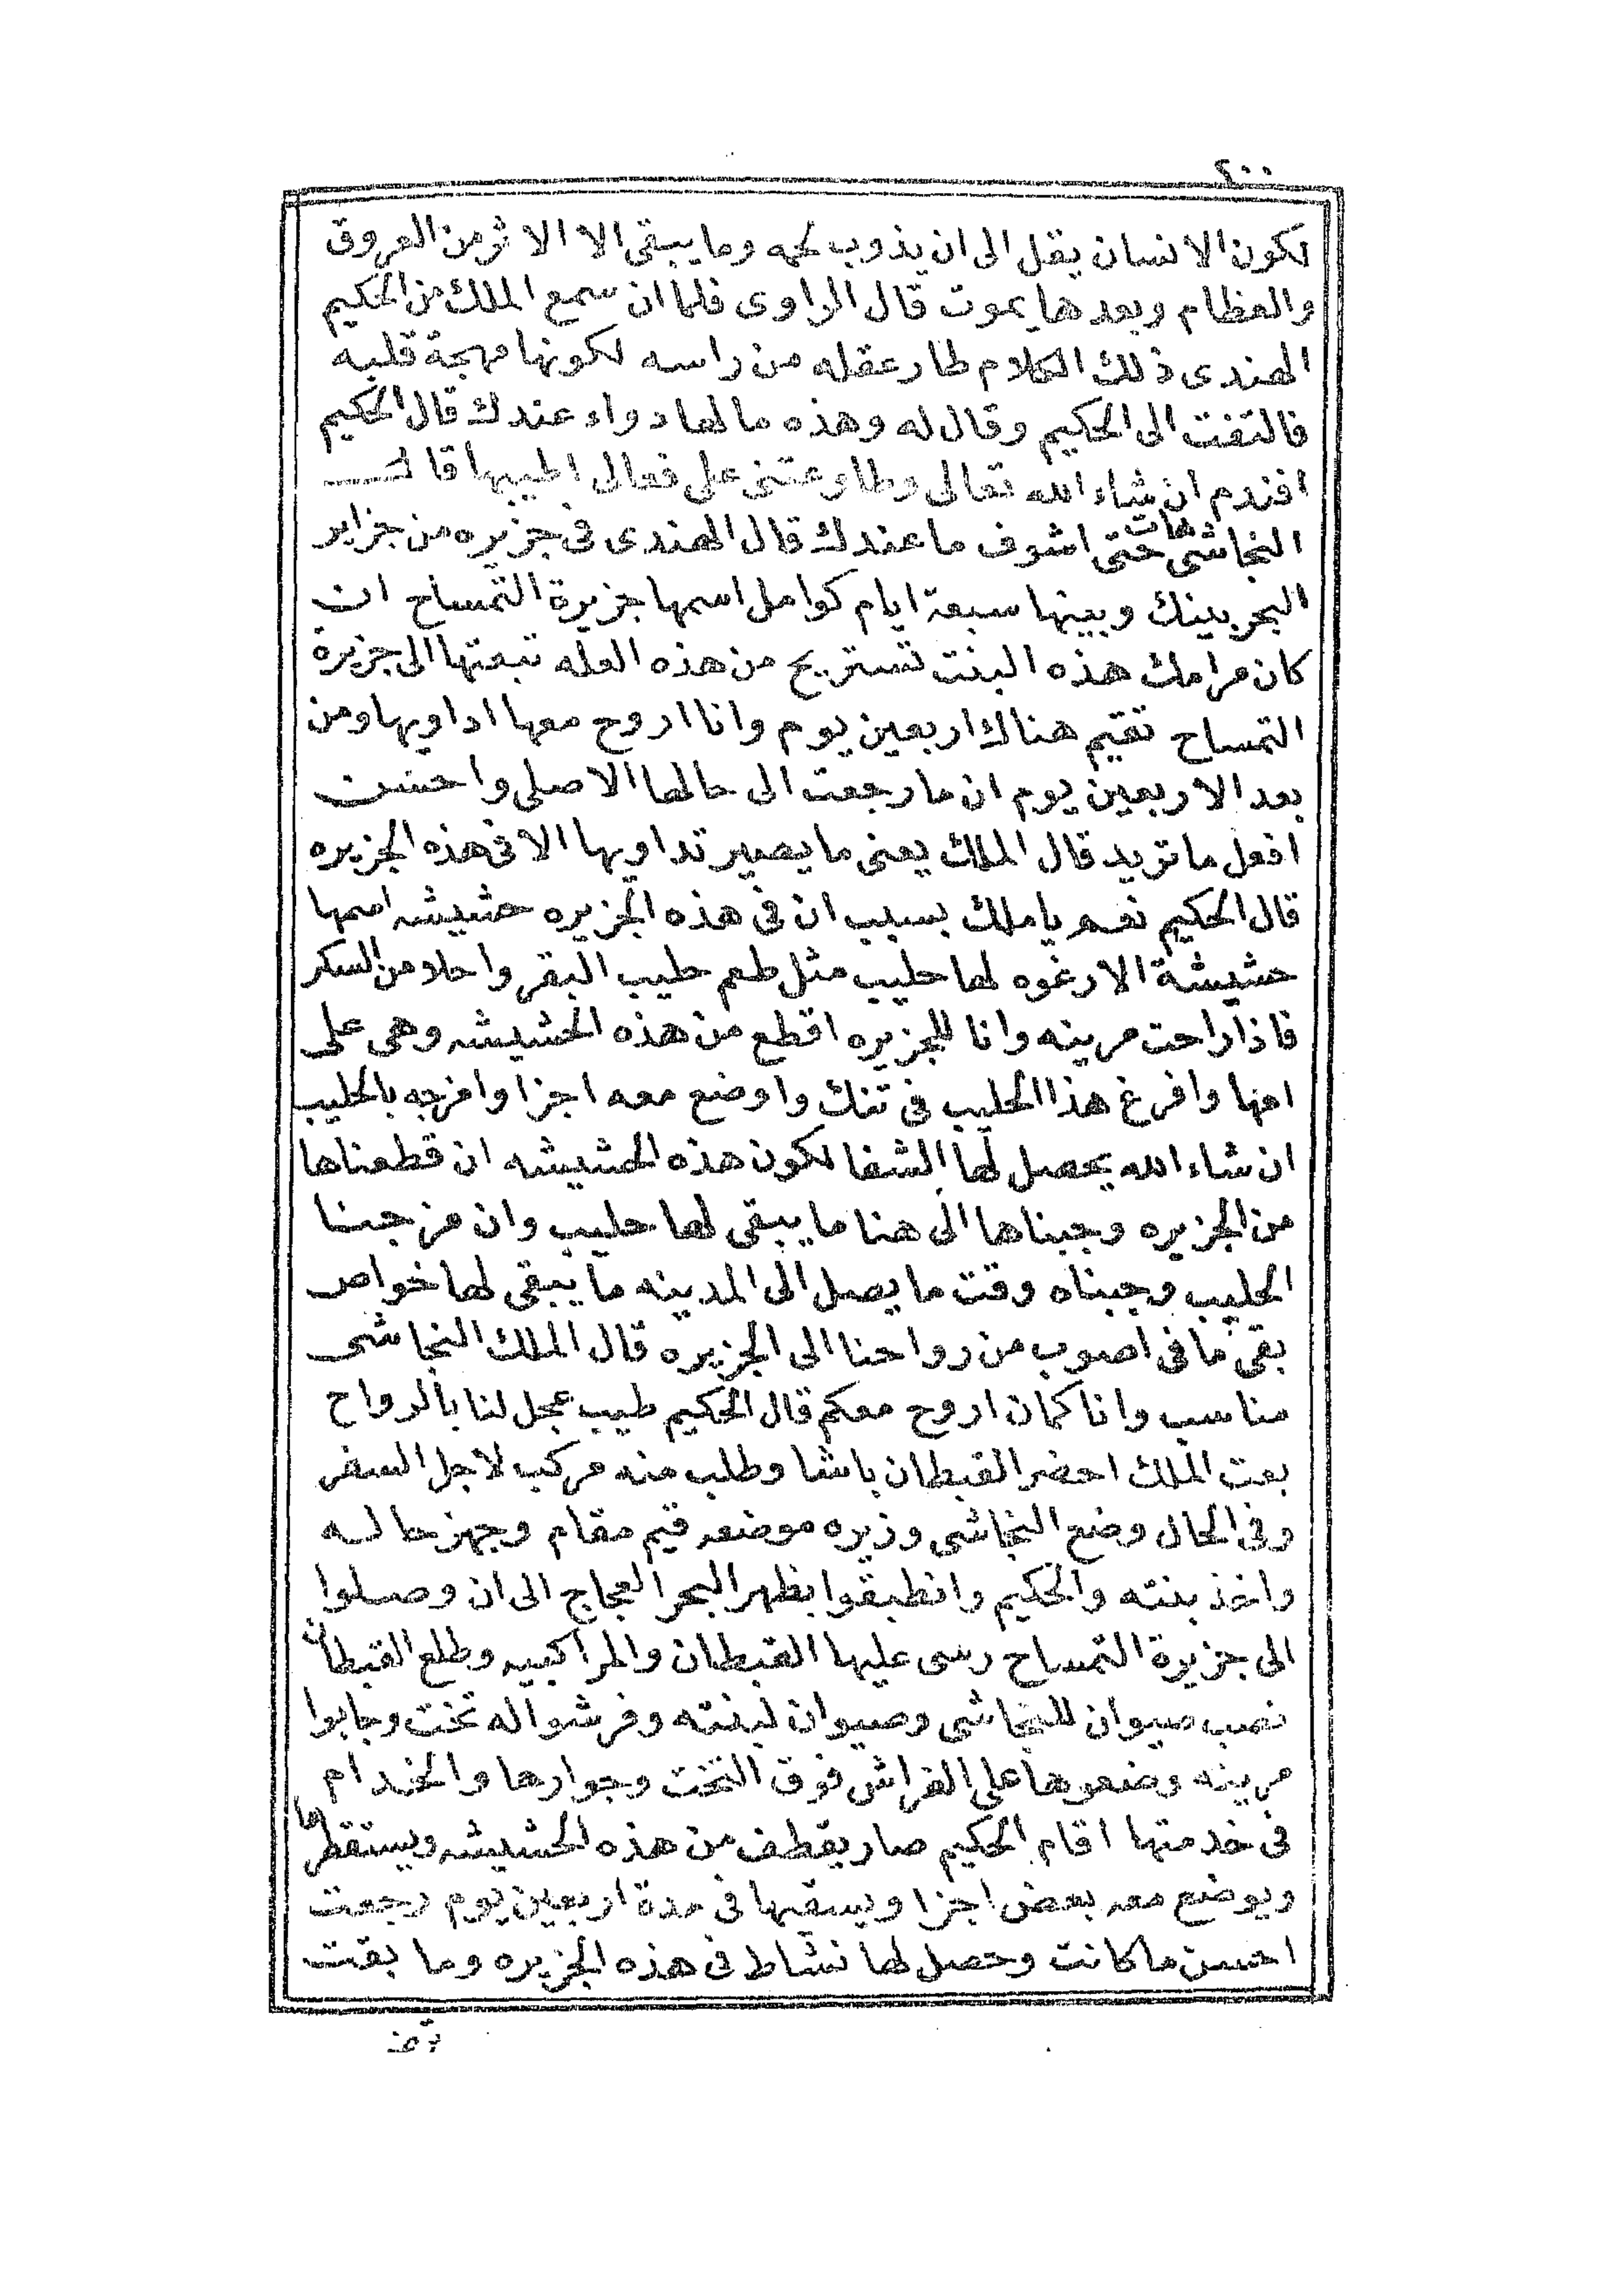 لكون الانسان يقل الى ان يذوب لحمه وما يبقى الا الاثر من العروق
والعظام وبعدها يموت قال الراوى فلما ان سمع الملك من الحكيم
الهندى ذلك الكلام طار عقله من راسه لكونها مهجة قلبه
فالتفت الى الحكيم وقال له وهذه ما لها دواء عندك قال الحكيم
افندم ان شاء الله تعالى وطاوعتنى على فعالى اطيبها قال
النجاشى هات حتى اشوف ما عندك قال الهندى فى جزيره من جزاير
البحر بينك وبينها سبعة ايام كوامل اسمها جزيرة التمساح ان
كان مرامك هذه البنت تستريح من هذه العله تبعتها الى جزيرة
التمساح تقيم هناك اربعين يوم وانا اروح معها اداويها ومن
بعد الاربعين يوم ان ما رجعت الى حالها الاصلى واحسن
افعل ما تريد قال الملك يعنى ما يصير تداويها الا فى هذه الجزيره
قال الحكيم نعم يا ملك بسبب ان فى هذه الجزيره حشيشه اسمها
حشيشة الارغوه لها حليب مثل طعم حليب البقر واحلا من السكر
فاذا راحت مرينه وانا للجزيره اقطع من هذه الحشيشه وهى على
امها وافرغ هذا الحليب فى تنك واوضع معه اجزا وامزجه بالحليب
ان شاء الله يحصل لها الشفا لكون هذه الحشيشه ان قطعناها
من الجزيره وجبناها الى هنا ما يبقى لها حليب وان مزجنا
الحليب وجبناه وقت ما يصل الى المدينه ما يبقى لها خواص
بقى ما فى اصوب من رواحنا الى الجزيره قال الملك النجاشى
مناسب وانا كمان اروح معكم قال الحكيم طيب عجل لنا بالرواح
بعت الملك احضر القبطان باشا وطلب منه مركب لاجل السفر
وفى الحال وضع النجاشى وزيره موضعه قيم مقام وجهز حاله
واخذ بنته والحكيم وانطبقوا بظهر البحر العجاج الى ان وصلوا
الى جزيرة التمساح رسى عليها القبطان والمراكبيه وطلع القبطان
نصب صيوان للنجاشى وصيوان لبنته وفرشوا له تخت وجابوا
مرينه وضعوها على الفراش فوق التخت وجوارها والخدام
فى خدمتها اقام الحكيم صار يقطف من هذه الحشيشه ويستقطرها
ويوضع معه بعض اجزا ويسقيها فى مدة اربعين يوم رجعت
احسن ما كانت وحصل لها نشاط فى هذه الجزيره وما بقت